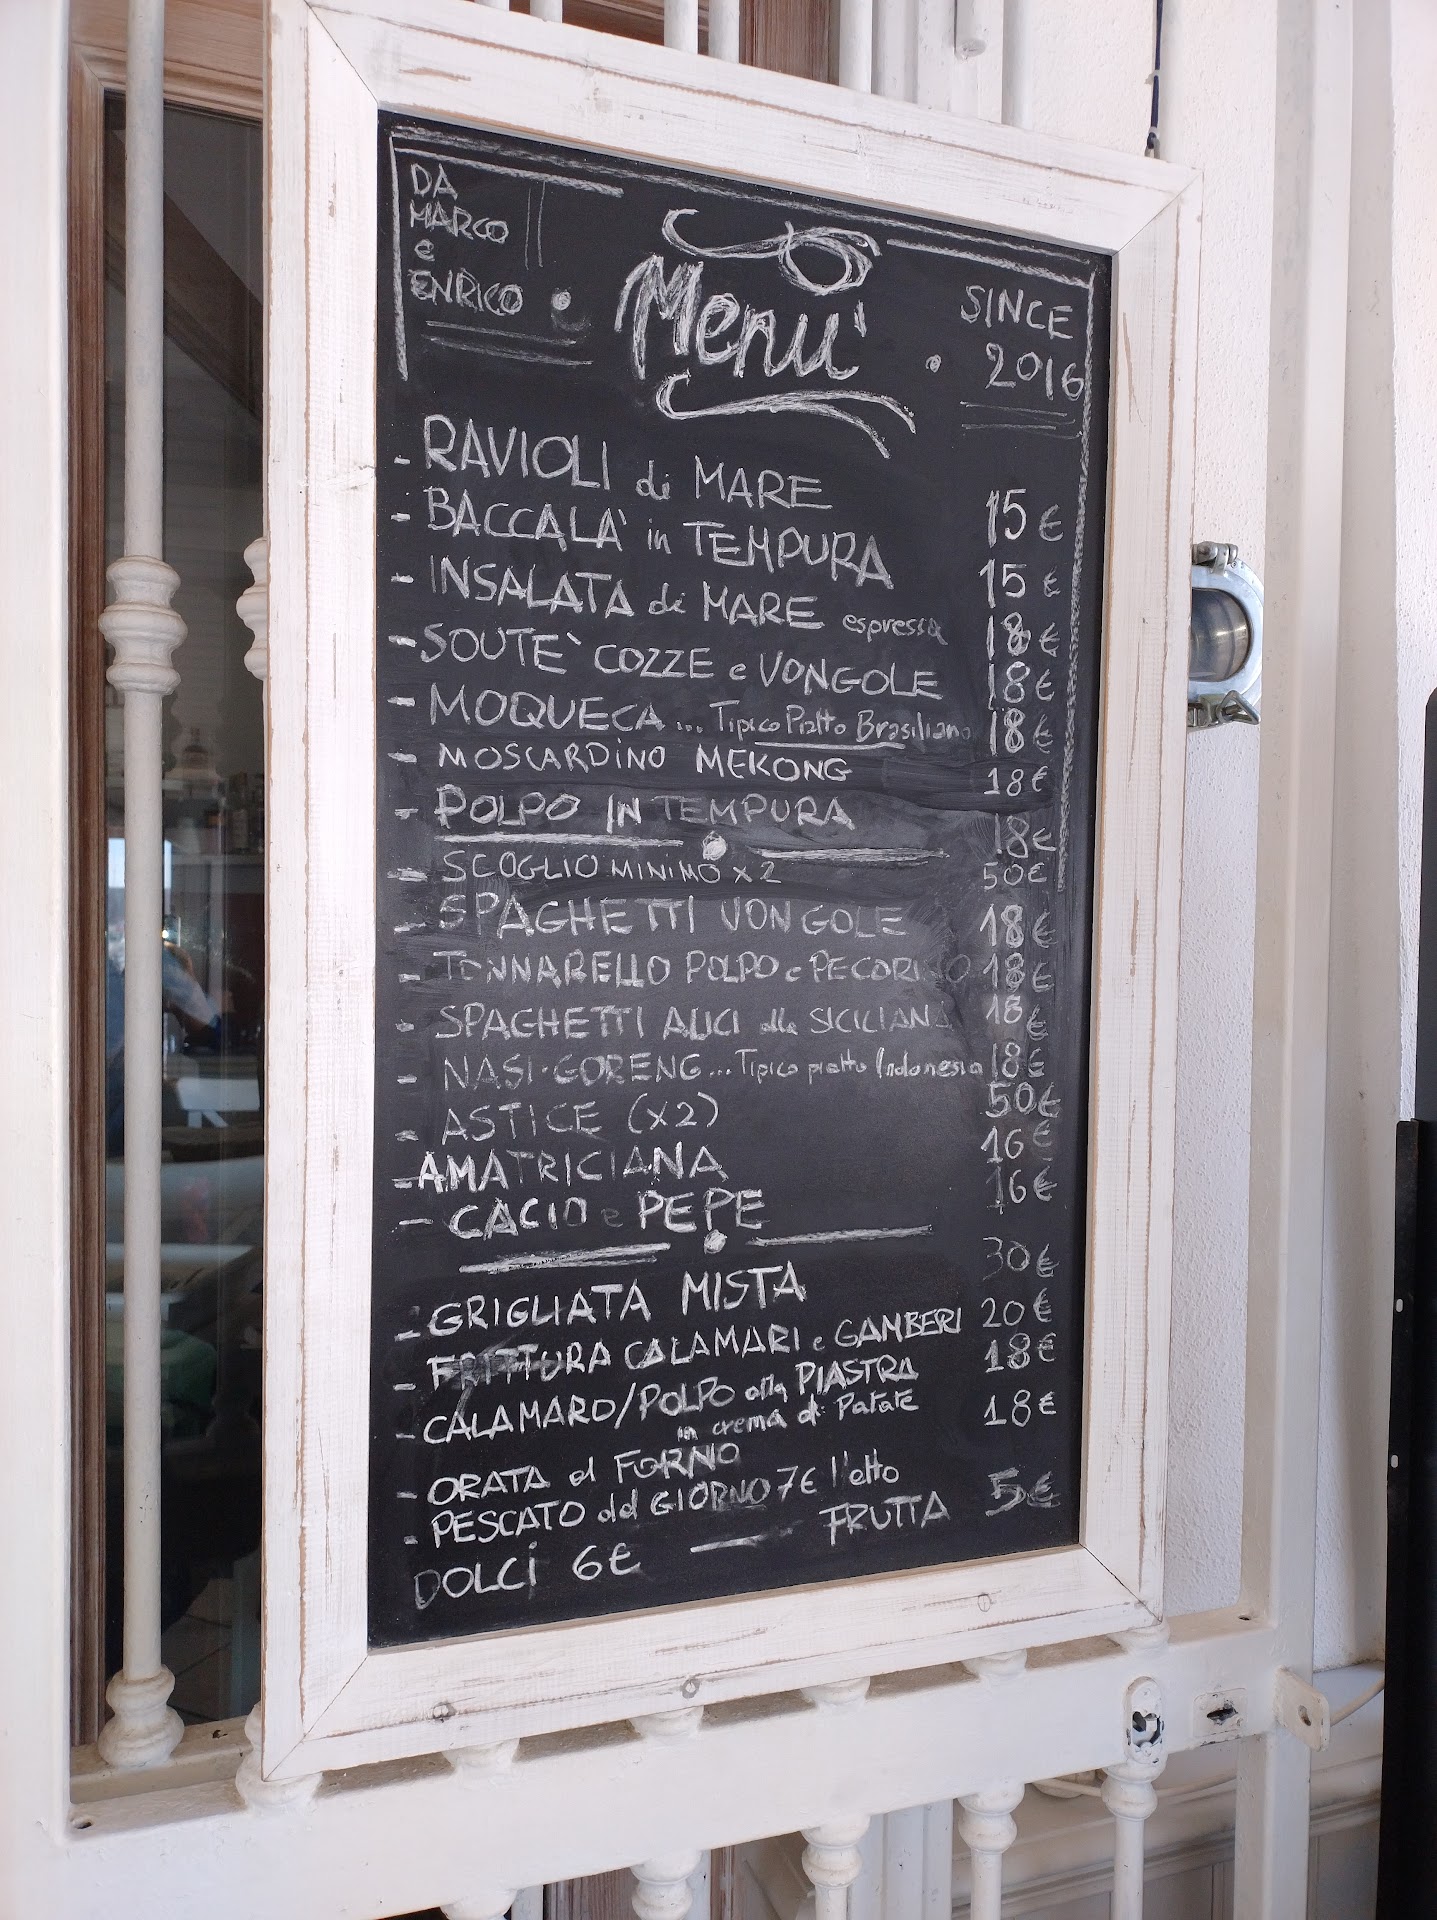 DA
MARCO
e
ENRICO
Menu'
SINCE
2016
- RAVIOLI di MARE 15 €
- BACCALA' in TEMPURA 15 €
- INSALATA di MARE espressa 18 €
- SOUTE` COZZE e VONGOLE 18 €
- MOQUECA ... Tipico Piatto Brasiliano 18 €
- MOSCARDINO MEKONG 18 €
- POLPO IN TEMPURA 18 €
- SCOGLIO MINIMO x 2 50 €
- SPAGHETTI VONGOLE 18 €
- TONNARELLO POLPO e PECORINO 18 €
- SPAGHETTI ALICI alla SICILIANA 18 €
- NASI-GORENG ... Tipico piatto Indonesia 18 €
- ASTICE (x2) 50 €
- AMATRICIANA 16 €
- CACIO e PEPE 16 €
- GRIGLIATA MISTA 30 €
- FRITTURA CALAMARI e GAMBERI 20 €
- CALAMARO/POLPO alla PIASTRA 18 €
in crema di Patate
- ORATA al FORNO 18 €
- PESCATO del GIORNO 7€ l'etto
DOLCI 6€ — FRUTTA 5 €